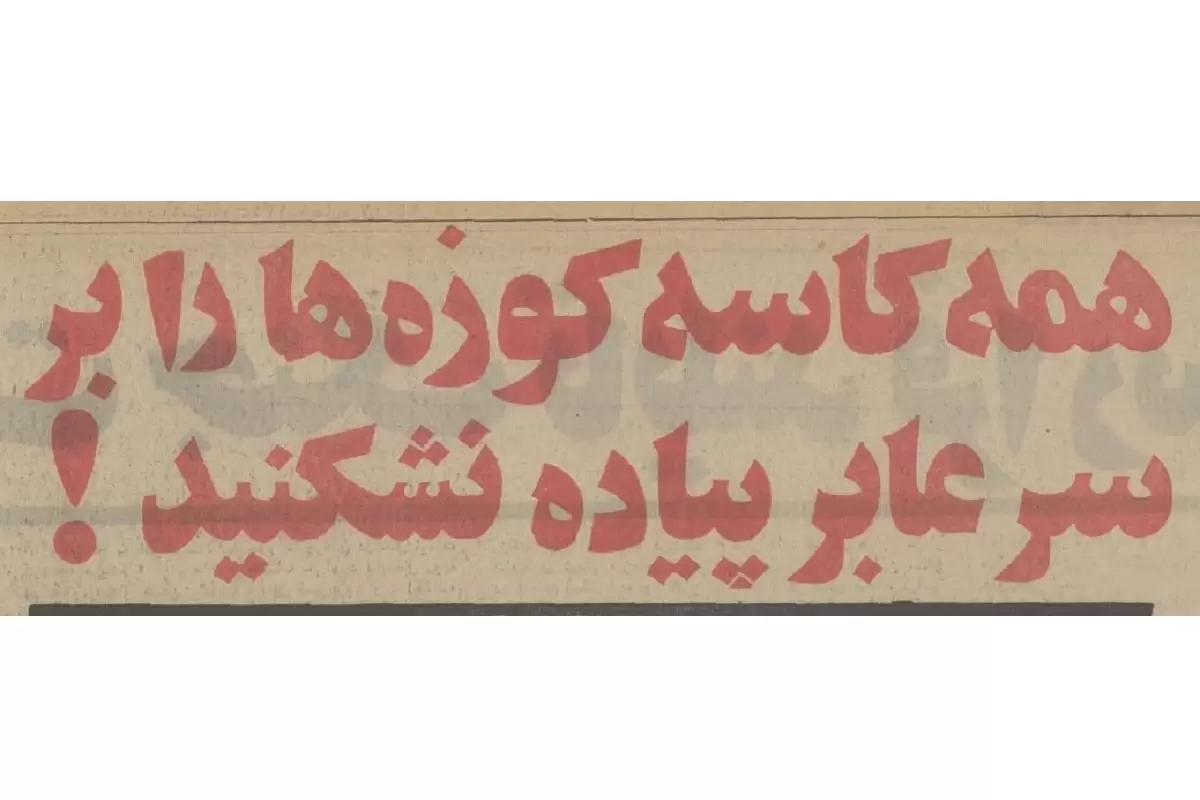 همه کاسه کوزه‌ها را بر
سر عابر پیاده نشکنید!